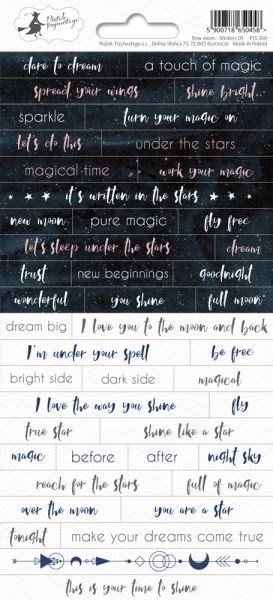 Piątek Trzynastego
5 900718 650458 >
New moon - Stickers 01 P13-360
Piątek Trzynastego s.c., Dolina Słońca 73, 72-003 Bezrzecze Made in Poland
dare to dream a touch of magic
spread your wings shine bright
sparkle turn your magic on
let's do this under the stars
magical time work your magic
it's written in the stars
new moon pure magic fly free
let's sleep under the stars dream
trust new beginnings goodnight
wonderful you shine full moon
dream big I love you to the moon and back
I'm under your spell be free
bright side dark side magical
I love the way you shine fly
true star shine like a star
magic before after night sky
reach for the stars full of magic
over the moon you are a star
tonight make your dreams come true
this is your time to shine